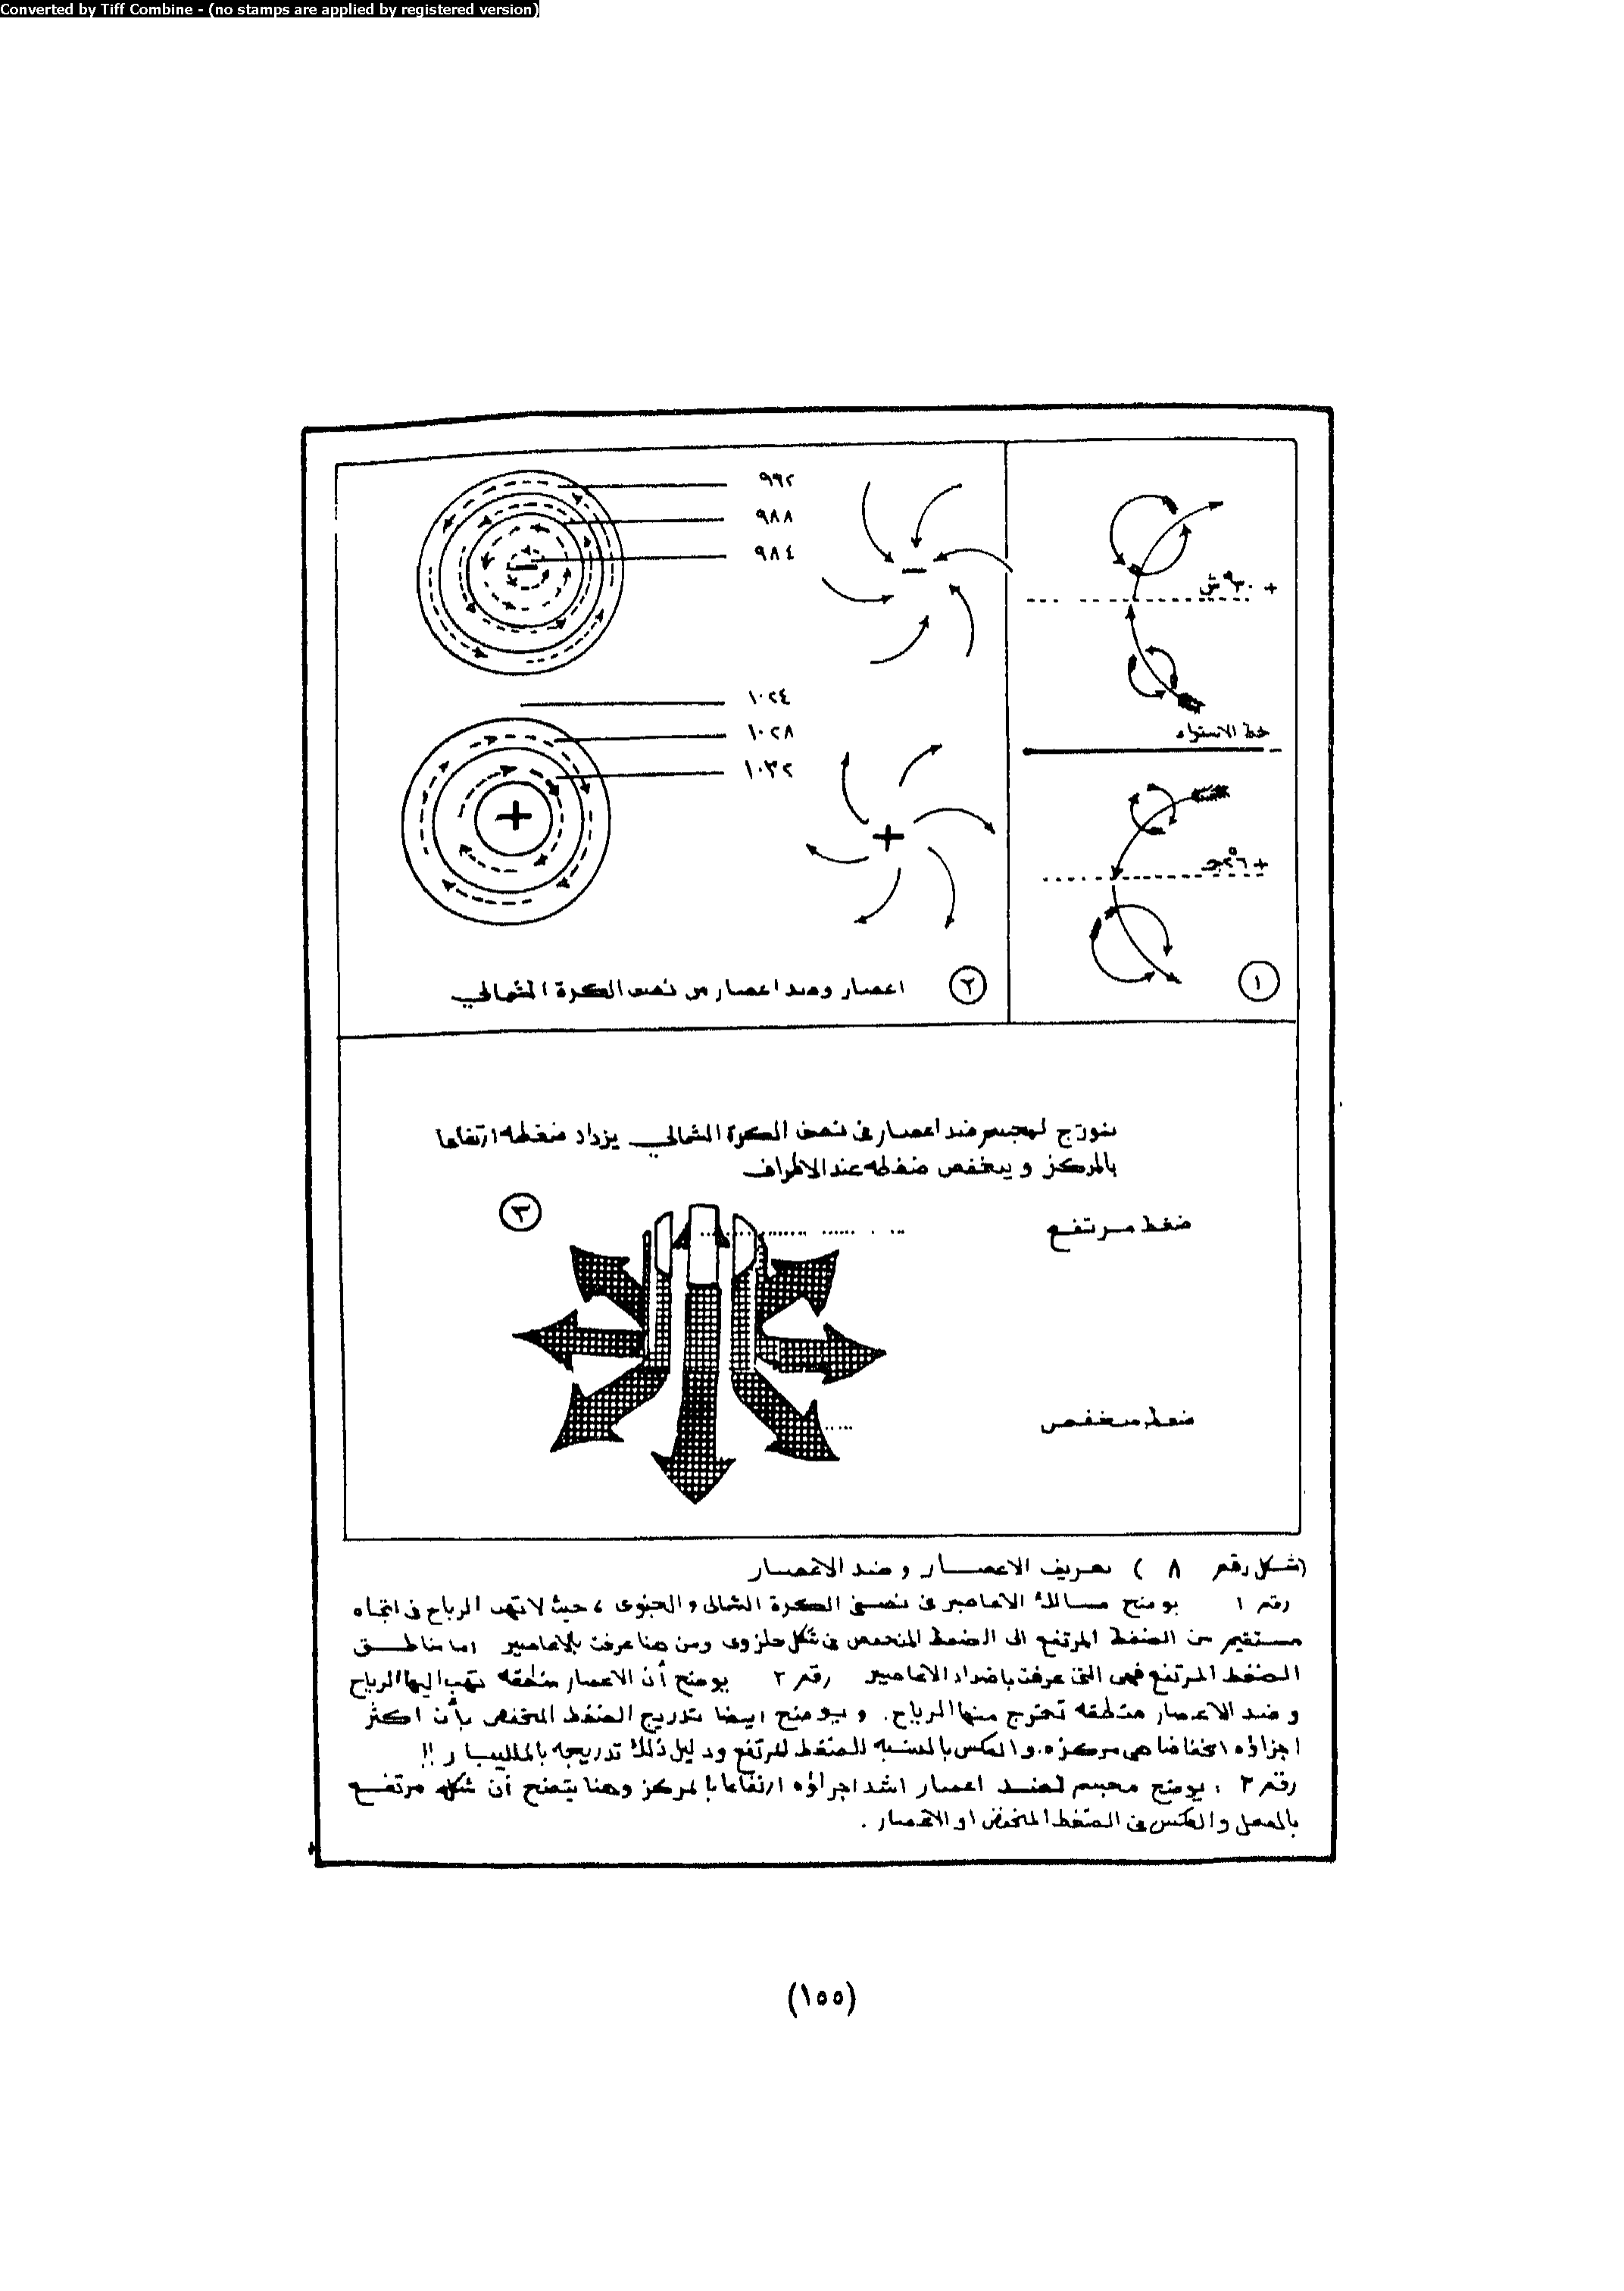 Converted by Tiff Combine - (no stamps are applied by registered version)
٩٩٢
٩٨٨
٩٨٤
١٠٢٤
١٠٢٨
١٠٣٢
+ ٣٠° ش
خط الاستواء
+ ٢٦° جـ
١
٢ اعصار وضد اعصار من نصف الكرة الشمالي
نموزج لمجسم ضد اعصار فى نصف الكرة الشمالي يزداد ضغطه ارتفاعا
بالمركز وينخفض ضغطه عند الاطراف
٣
ضغط مرتفع
ضغط منخفض
(شكل رقم ٨ ) تعريف الاعصار وضد الاعصار
رقم ١ يوضح مسالك الاعاصير فى نصفى الكرة الشمالى والجنوبى ، حيث لا تهب الرياح فى اتجاه
مستقيم من الضغط المرتفع الى الضغط المنخفض فى شكل حلزونى ومن هنا عرفت بالاعاصير اما مناطق
الضغط المرتفع فهى التى عرفت باضداد الاعاصير رقم ٢ يوضح أن الاعصار منطقه تهب اليها الرياح
وضد الاعصار منطقه تخرج منها الرياح. ويوضح ايضا تدريج الضغط المنخفض بأن اكثر
اجزاؤه انخفاضا هى مركزه. والعكس بالنسبه للضغط المرتفع ودليل ذلك تدريجه بالملليبار !!
رقم ٣ : يوضح مجسم لضد اعصار اشد اجزاؤه ارتفاعا بالمركز وهنا يتضح أن شكله مرتفع
بالفعل والعكس فى الضغط المنخفض او الاعصار .
(١٥٥)